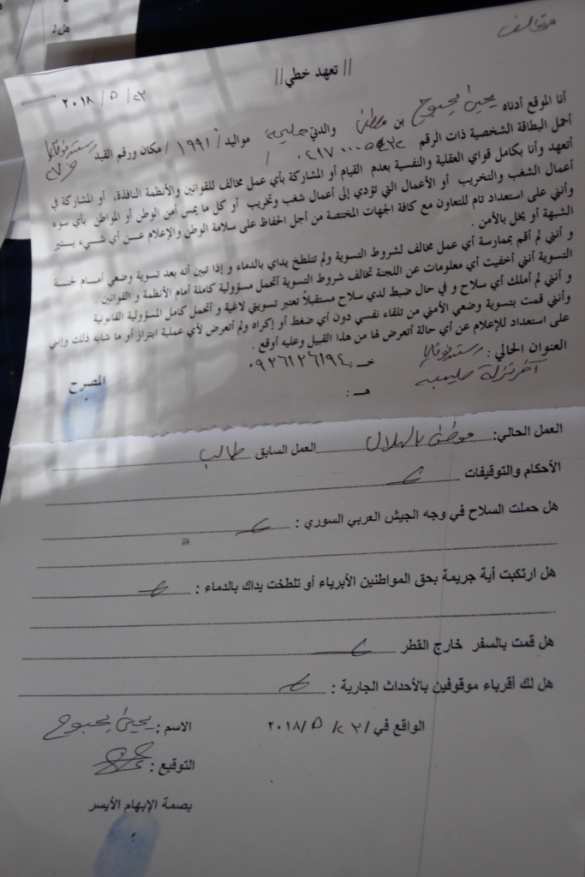 // تعهد خطي //
٢٠١٨ / ٥ / ٢٣
أنا الموقع أدناه يحيى يحبوح بن مصطفى والدتي حليمه مواليد / ١٩٩١ / مكان ورقم القيد
أحمل البطاقة الشخصية ذات الرقم
أتعهد وأنا بكامل قواي العقلية والنفسية بعدم القيام أو المشاركة بأي عمل مخالف للقوانين والأنظمة النافذة، أو المشاركة في
أعمال الشغب والتخريب أو الأعمال التي تؤدي إلى أعمال شغب وتخريب أو كل ما يمس أمن الوطن أو المواطن بأي سوء
وأنني على استعداد تام للتعاون مع كافة الجهات المختصة من أجل الحفاظ على سلامة الوطن والإعلام عن أي شيء يستير
الشبهة أو يخل بالأمن .
و أنني لم أقم بممارسة أي عمل مخالف لشروط التسوية ولم تتلطخ يداي بالدماء و إذا تبين أنه بعد تسوية وضعي أمام لجنة
التسوية أنني أخفيت أي معلومات عن اللجنة تخالف شروط التسوية أتحمل مسؤولية كاملة أمام الأنظمة و القوانين.
و أنني لم أملك أي سلاح و في حال ضبط لدي سلاح مستقبلاً تعتبر تسويتي لاغية و أتحمل كامل المسؤولية القانونية
وأنني قمت بتسوية وضعي الأمني من تلقاء نفسي دون أي ضغط أو إكراه ولم أتعرض لأي عملية ابتزاز أو ما شابه ذلك وإنني
على استعداد للإعلام عن أي حالة أتعرض لها من هذا القبيل وعليه أوقع .
العنوان الحالي :
خـ ـ ٠٩٣٦١٢٦١٩٤
هـ :
المصرح
العمل الحالي: موظف بالهلال العمل السابق طالب
الأحكام والتوقيفات
هل حملت السلاح في وجه الجيش العربي السوري :
هل ارتكبت أية جريمة بحق المواطنين الأبرياء أو تلطخت يداك بالدماء :
هل قمت بالسفر خارج القطر
هل لك أقرباء موقوفين بالأحداث الجارية :
الواقع في / ٢٣ / ٥ / ٢٠١٨
الاسم : يحيى يحبوح
التوقيع :
بصمة الإبهام الأيسر